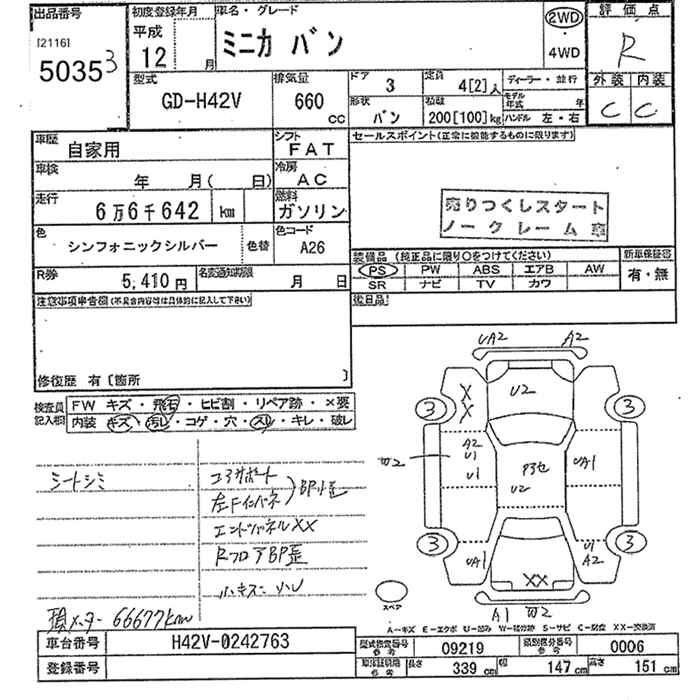 出品番号
[2116]
5035 3
初度登録年月
平成
12 月
車名・グレード
ミニカ バン
2WD
・
4WD
評価点
R
外装 内装
C C
型式
GD-H42V
排気量
660
cc
ドア
3
定員
4[2]人
形状
バン
積載
200[100]kg
ディーラー・並行
モデル年式 年
ハンドル 左・右
車歴
自家用
シフト
FAT
車検
年 月( 日)
冷房
AC
走行
6万6千642 km
燃料
ガソリン
色
シンフォニックシルバー
色替
色コード
A26
R券
5,410円
名変通知期限
月 日
セールスポイント(正常に機能するものに限ります)
売りつくしスタート
ノークレーム車
装備品 (純正品に限り○をつけてください)
PS PW ABS エアB AW
SR ナビ TV カワ
新車保証書
有・無
後日品
注意事項申告欄(不具合内容等は具体的に記入して下さい)
修復歴 有〔箇所 〕
検査員
記入欄
FW キズ・飛石・ヒビ割・リペア跡・×要
内装 キズ・汚レ・コゲ・穴・スレ・キレ・破レ
シートシミ
コアサポート
左Fインパネ
BP小歪
エンドパネルXX
RフロアBP歪
小キズ・凹
積メーター 66677km
UA2 A2
X
X
U2
3 3
A2
U1
U1
U2
UA1
3 3
UA1
U1
A2
XX
A1
スペア
A-キズ E-エクボ U-凹み W-補修跡 S-サビ C-腐食 XX-交換済
車台番号
H42V-0242763
登録番号
型式指定番号
参考
09219
類別区分番号
参考
0006
車体証明用
参考
長さ
339 cm
幅
147 cm
高さ
151 cm